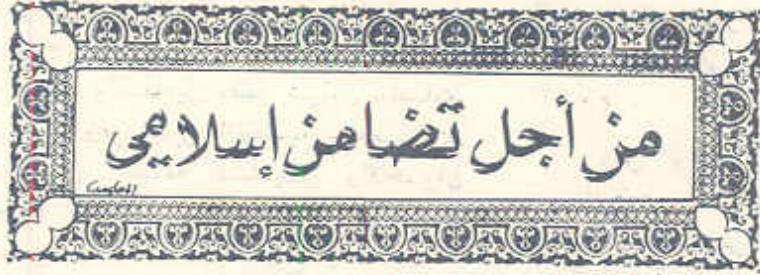 من أجل تضامن إسلامي